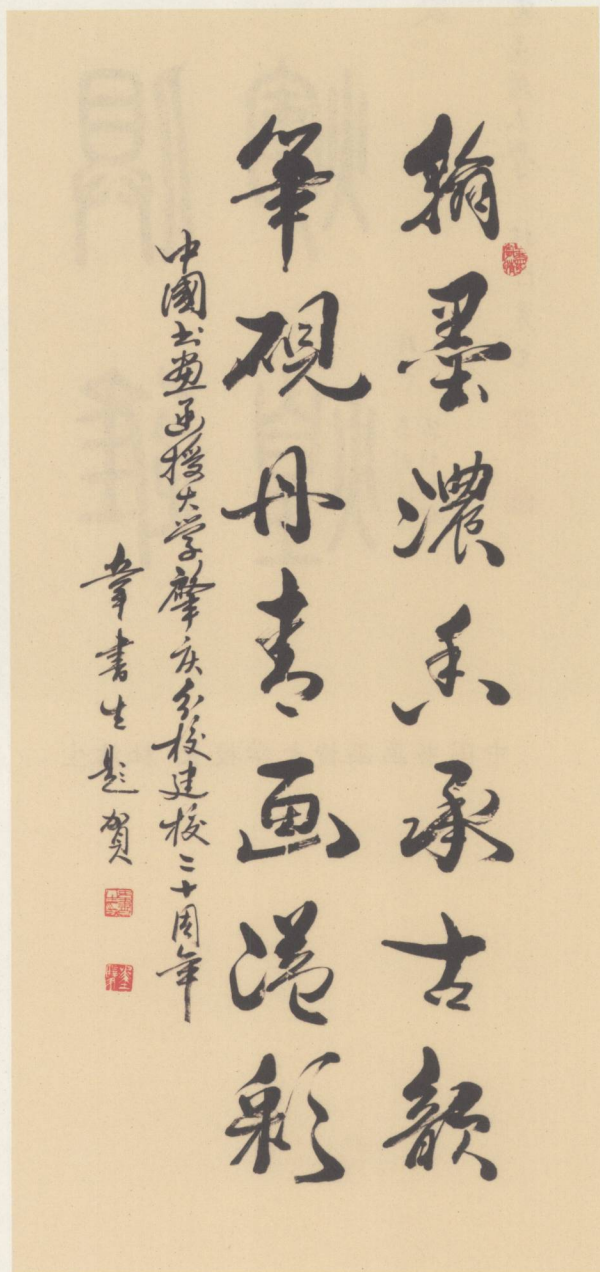 翰墨濃香承古韻
筆硯丹青画溢彩
中國书画函授大学肇庆分校建校二十周年
韋書生题贺